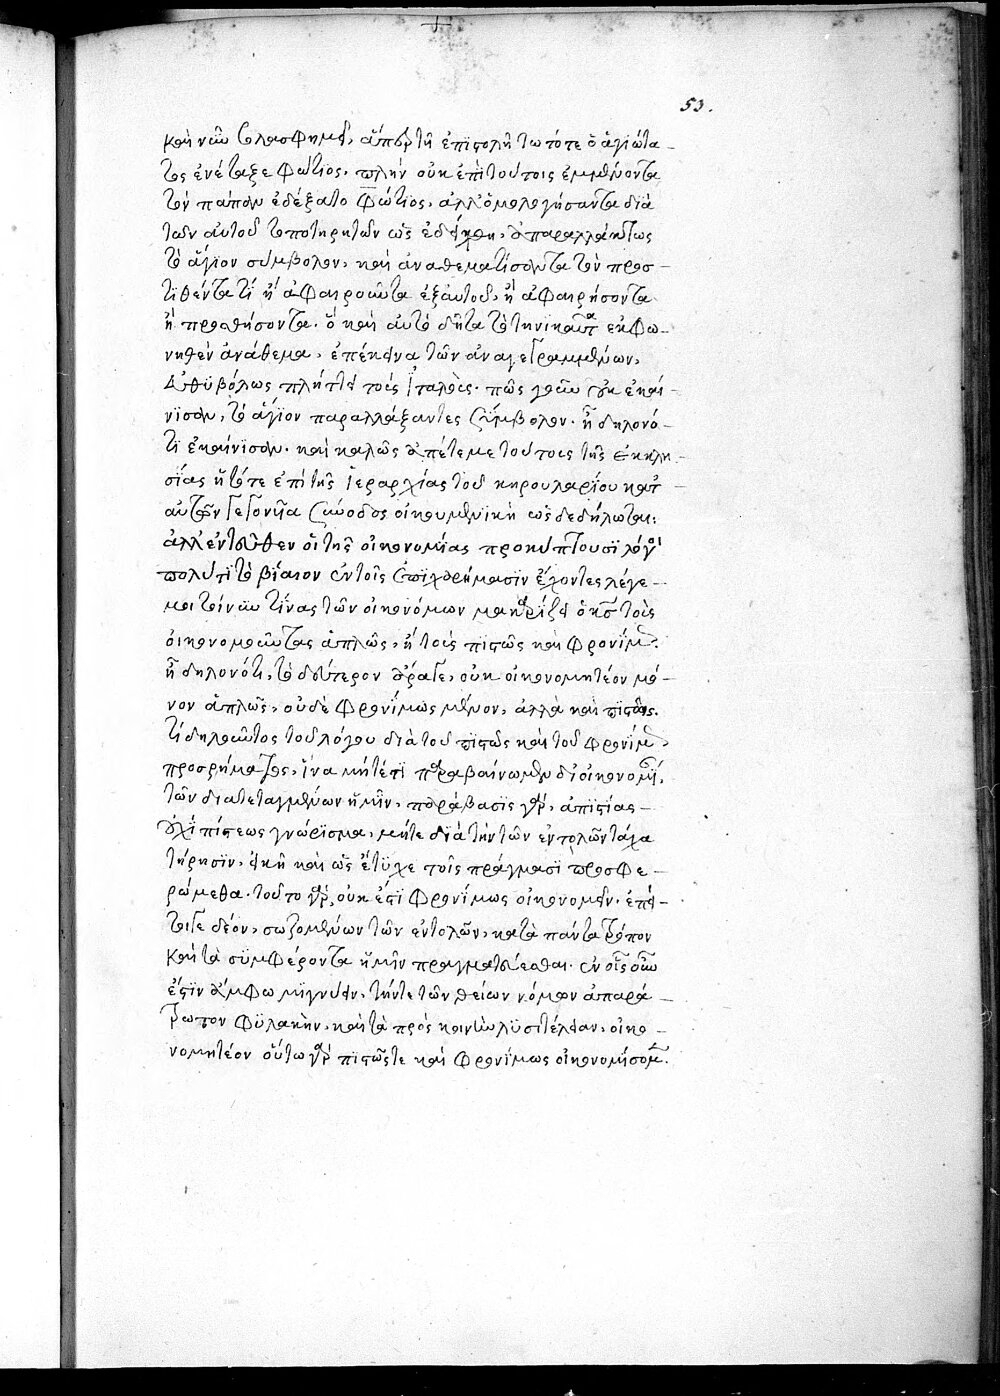 53.
καὶ νῦν βλασφημεῖ, ἅπερ τῇ ἐπιστολῇ τῷ τότε ὁ ἁγιώτα-
τος ἐνέταξε Φώτιος. πλὴν οὐκ ἐπὶ τούτοις ἐμμένοντα
τὸν πάπαν ἐδέξατο Φώτιος, ἀλλ' ὁμολογήσαντα διὰ
τῶν αὐτοῦ τοποτηρητῶν ὡς ἐδείχθη, ἀπαραλλάκτως
τὸ ἅγιον σύμβολον, καὶ ἀναθεματίσαντα τὸν προσ-
τιθέντα τὶ ἢ ἀφαιροῦντα ἐξ αὐτοῦ, ἢ ἀφαιρήσοντα
ἢ προσθήσοντα. ὃ καὶ αὐτὸ δῆτα τὸ τηνικαῦτα ἐκφω-
νηθὲν ἀνάθεμα, ἐπέκεινα τῶν ἀναγεγραμμένων,
εὐθυβόλως πλήττει τοὺς Ἰταλούς. πῶς γὰρ οὐκ ἐκαί-
νισαν, τὸ ἅγιον παραλλάξαντες σύμβολον. ἢ δηλονό-
τι ἐκαίνισαν. καὶ καλῶς ἀπέτεμε τούτους τῆς ἐκκλη-
σίας ἡ τότε ἐπὶ τῆς ἱεραρχίας τοῦ κηρουλαρίου κατ'
αὐτῶν γεγονυῖα σύνοδος οἰκουμενικὴ ὡς δεδήλωται:
ἀλλ' ἐντεῦθεν οἱ τῆς οἰκονομίας προκύπτουσι λόγοι
πολύ τι τὸ βίαιον ἐν τοῖς ἐπιχειρήμασιν ἔχοντες λέγε-
μοι τοίνυν τίνας τῶν οἰκονόμων μακαρίζει ὁ κύριος τοὺς
οἰκονομοῦντας ἁπλῶς, ἢ τοὺς πιστῶς καὶ φρονίμως.
ἢ δηλονότι, τὸ δεύτερον ἄραγε, οὐκ οἰκονομητέον μό-
νον ἁπλῶς, οὐδὲ φρονίμως μόνον, ἀλλὰ καὶ πιστῶς.
τί δηλοῦντος τοῦ λόγου διὰ τοῦ πιστῶς καὶ τοῦ φρονίμως
προσρήματος, ἵνα μήτέ τι παραβαίνωμεν δι' οἰκονομίαν,
τῶν διατεταγμένων ἡμῖν, παράβασις γὰρ, ἀπιστίας
οὐχὶ πίστεως γνώρισμα, μήτε διὰ τὴν τῶν ἐντολῶν τάχα
τήρησιν, εἰκῇ καὶ ὡς ἔτυχε τοῖς πράγμασι προσφε-
ρώμεθα. τοῦτο γὰρ, οὐκ ἔστι φρονίμως οἰκονομεῖν. ἐπεί-
τοιγε δέον, σωζομένων τῶν ἐντολῶν, κατὰ πάντα τρόπον
καὶ τὰ συμφέροντα ἡμῖν πραγματεύεσθαι. ἐν οἷς οὖν
ἔστιν ἄμφω μιγνύειν, τήν τε τῶν θείων νόμων ἀπαρά-
τρωτον φυλακὴν, καὶ τὰ πρὸς κοινὴν λυσιτέλειαν, οἰκο-
νομητέον οὕτω γὰρ πιστῶς τε καὶ φρονίμως οἰκονομήσομεν.